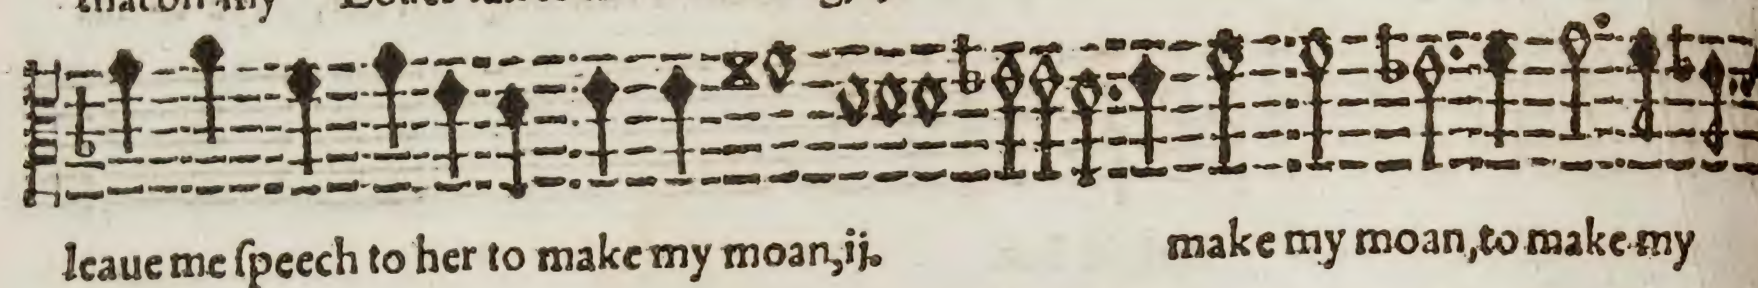 leaue me ſpeech to her to make my moan,ij. make my moan,to make my